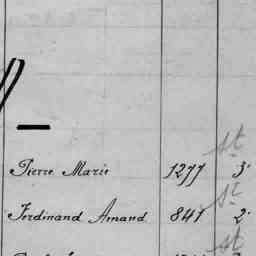 st
Pierre Marie 1277 3
st
Ferdinand Amand 841 2
st